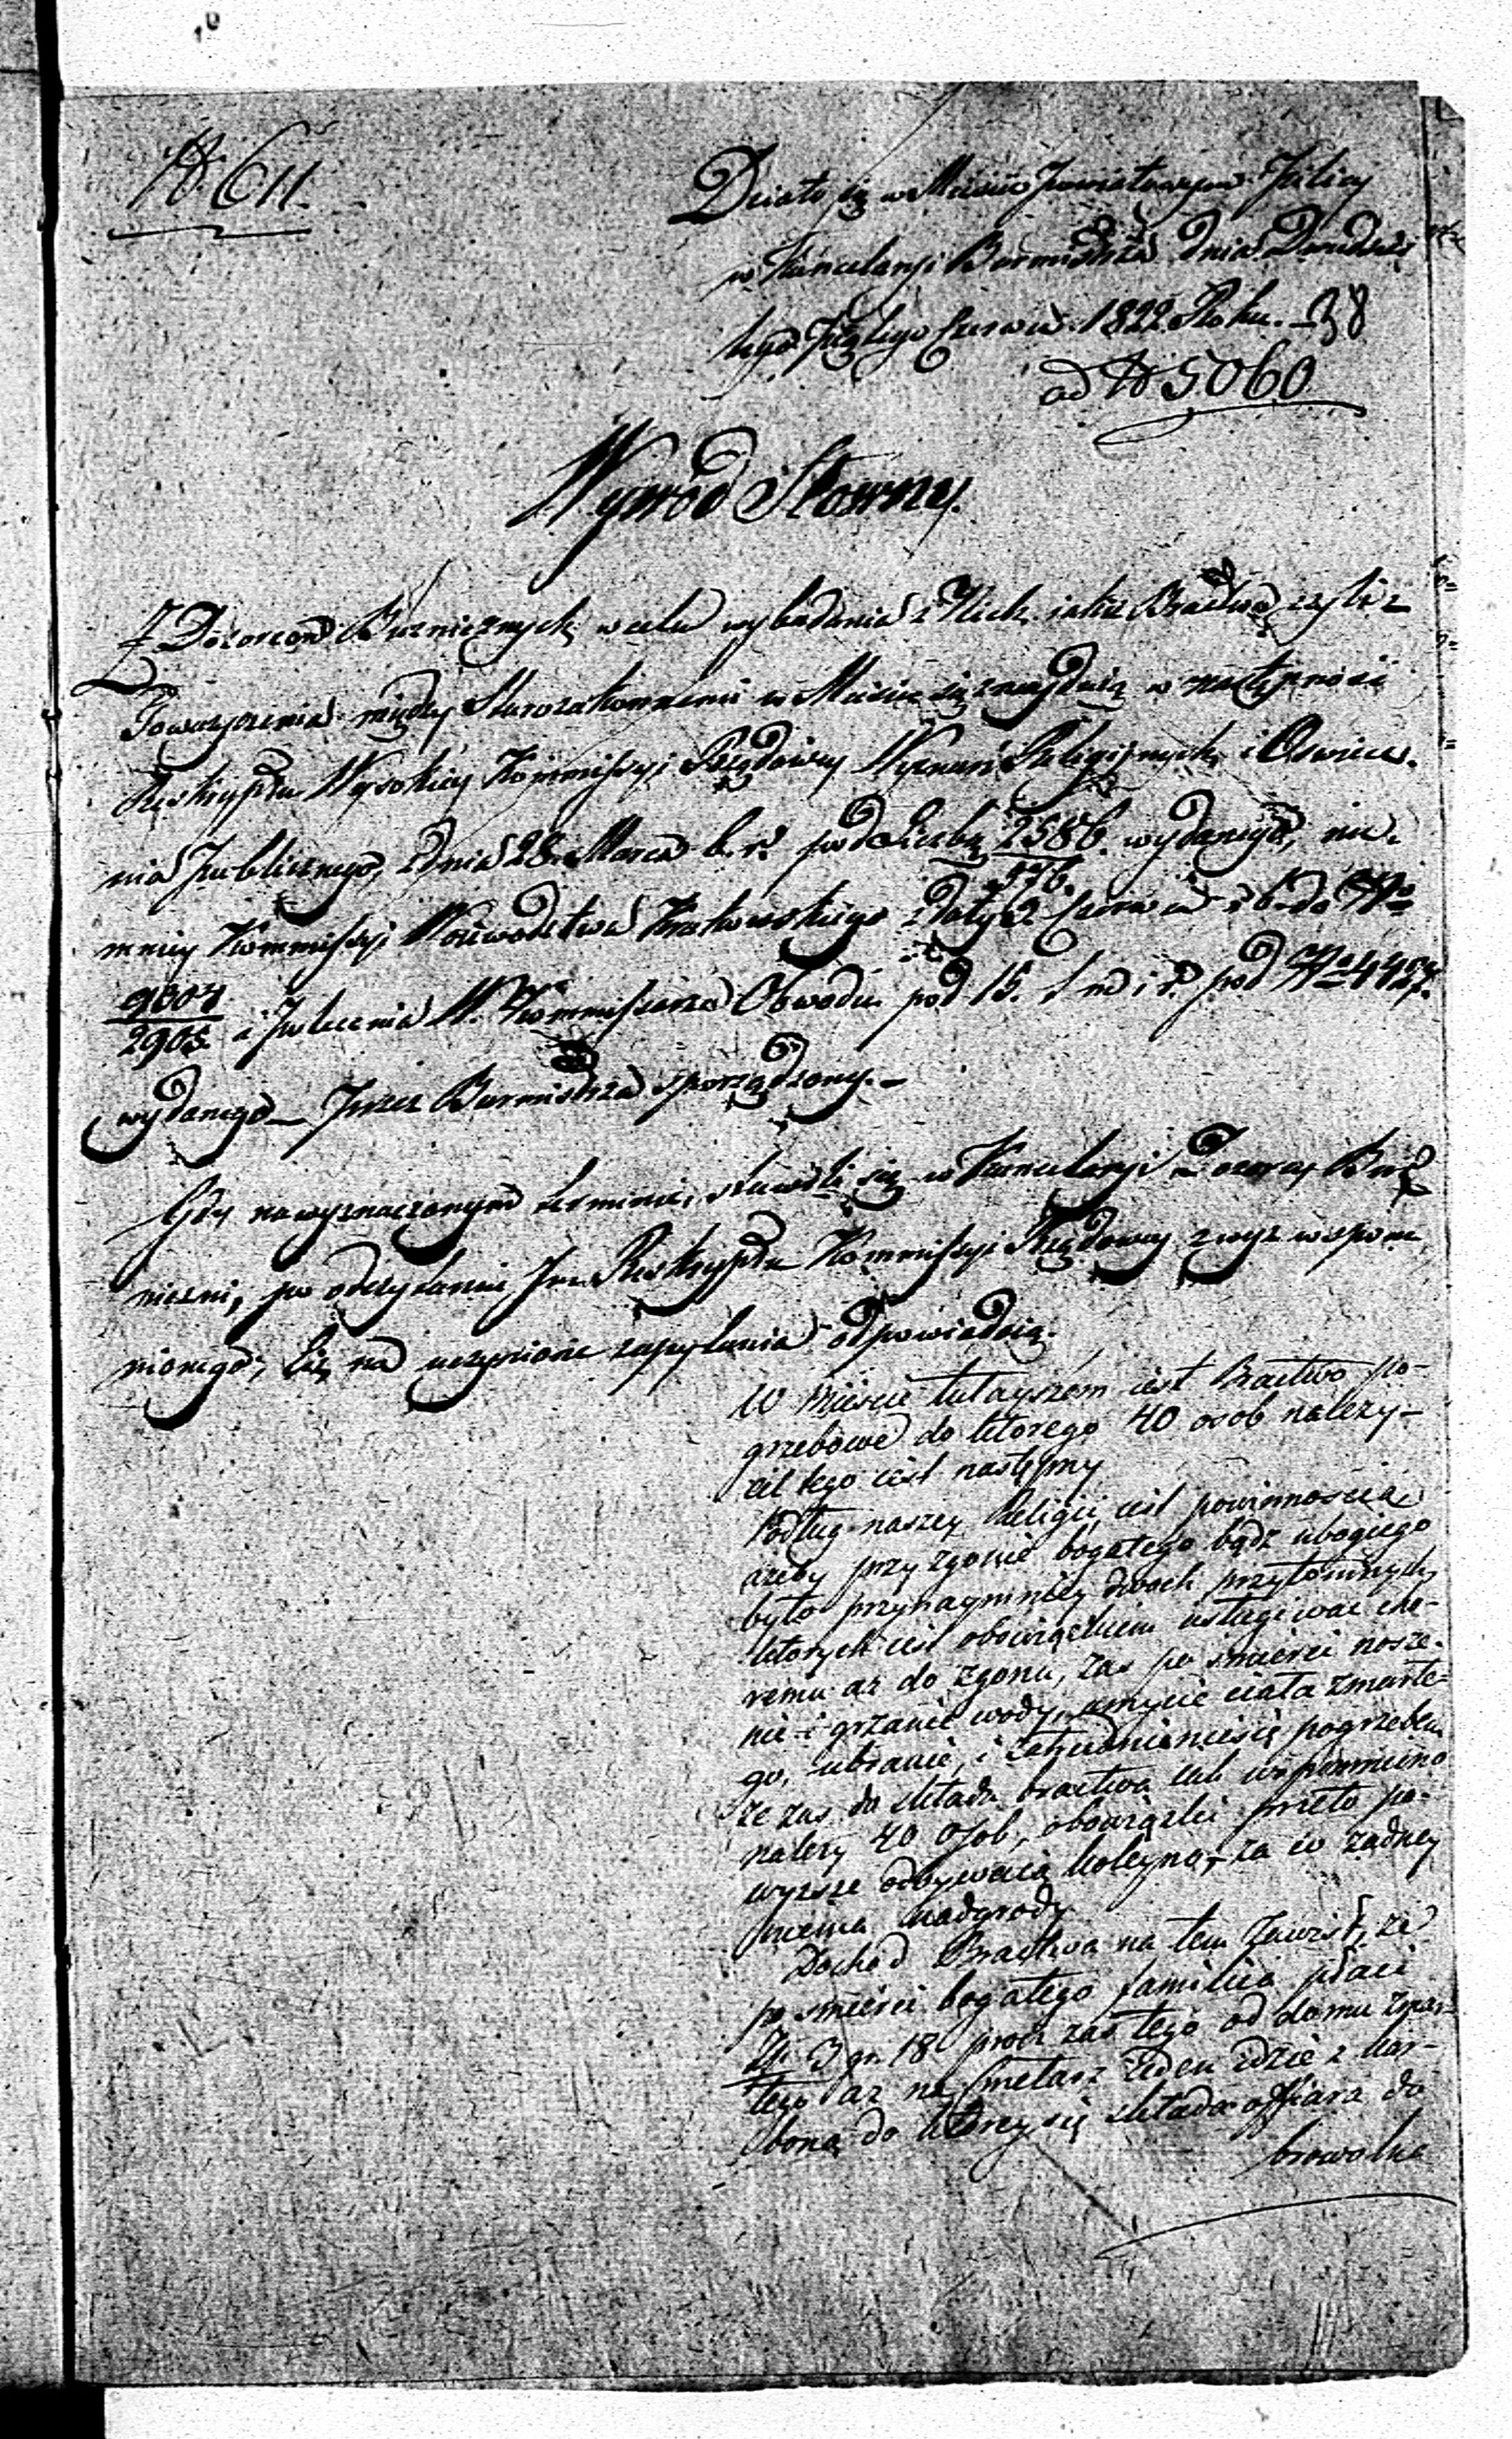 N. 611.
Działo się w Mieście Powiatowym Pilicy
w Kancelaryi Burmistrza dnia Dwudzie-
stego Piątego Czerwca 1822 Roku. 38
ad N 5060
Wywód Słowny.
Z Dozorców Bużnicznych w celu wybadania z Nich iakie Bractwa czyli z
Towarzyszenia między Starozakonnemi w Mieście się znayduią w następności
Reskryptu Wysokiey Kommissyi Rządowey Wyznań Religijnych i Oswiece-
nia Publicznego, z dnia 28. Marca b. r. pod Liczbą 2586. wydanego, nie-
mniey Kommissyi Woiewodztwa Krakowskiego z daty 2 Czerwca r. b. do No
9004/2905 i Polecenia W. Kommissarza Obwodu pod 15. t. m i r. pod No
wydanego — Przez Burmistrza sporządzony. —
Gdy na wyznaczonym terminie, stawili się w Kancelaryi Dozorcy Buż
niczni, po odczytaniu Im Reskryptu Kommissyi Rządowey zwyż wspom
nionego, Ciż na uczynione zapytania odpowiadaią.
W mieście tutayszém iest Bractwo po-
grzebowe do ktorego 40 osob nalezy —
cel tego iest następny
Podług naszey Religii iest powinnoscią
azeby przy zgonie bogatego bądz ubogiego
było przynaymniey dwoch przytomnych,
ktorych iest obowiązkiem usługiwac cho-
remu az do zgonu, zas po smierci nosze-
nie i grzanie wody, umycie ciała zmarłe-
go, ubranie, i zatrudnienie się pogrzebem
ze zas do składu bractwa iak wspomniano
nalezy 40 osob, obowiązki przeto po-
wyzsze odbywaią koleyno, za co zadney
niema nadgrody
Dochod Bractwa na tem zawisł, ze
po smierci bogatego familia płaci
Zł. 3 gr. 18 procz zas tego od domu zmar-
łego az na smetarz ieden idzie z kar-
boną do ktorey się składa offiara do
browolna